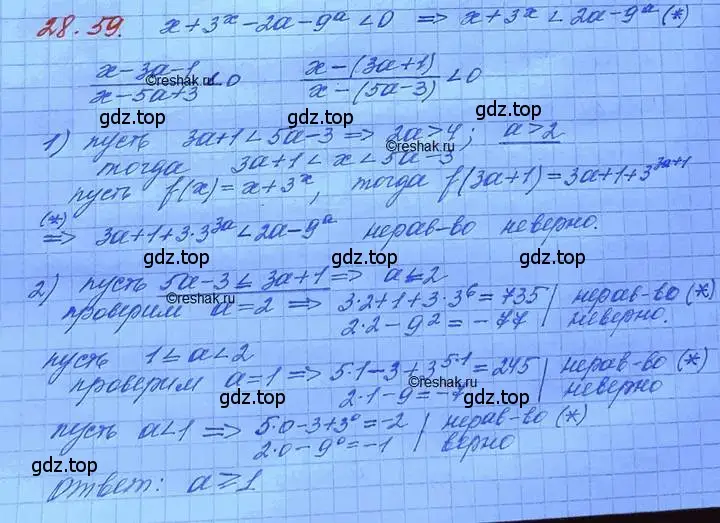 28.59. x+3^x-2a-9^a<0 ⇒ x+3^x<2a-9^a (*)
(x-3a-1)/(x-5a+3)<0 (x-(3a+1))/(x-(5a-3))<0
©reshak.ru
gdz.top gdz.top
1) пусть 3a+1<5a-3 ⇒ 2a>4; a>2
тогда 3a+1<x<5a-3
пусть f(x)=x+3^x, тогда f(3a+1)=3a+1+3^{3a+1}
gdz.top gdz.top
(*)
⇒ 3a+1+3·3^{3a}<2a-9^a нерав-во неверно.
gdz.top gdz.top
2) пусть 5a-3≤3a+1 ⇒ a≤2
©reshak.ru
проверим a=2 ⇒ 3·2+1+3·3^6=735 | нерав-во (*)
2·2-9^2=-77 | неверно.
gdz.top gdz.top
пусть 1≤a<2
проверим a=1 ⇒ 5·1-3+3^{5·1}=245 | нерав-во (*)
©reshak.ru
2·1-9=-7 | неверно
gdz.top gdz.top
пусть a<1 ⇒ 5·0-3+3^0=-2 | нерав-во (*)
2·0-9^0=-1 | верно
gdz.top gdz.top
Ответ: a≥1